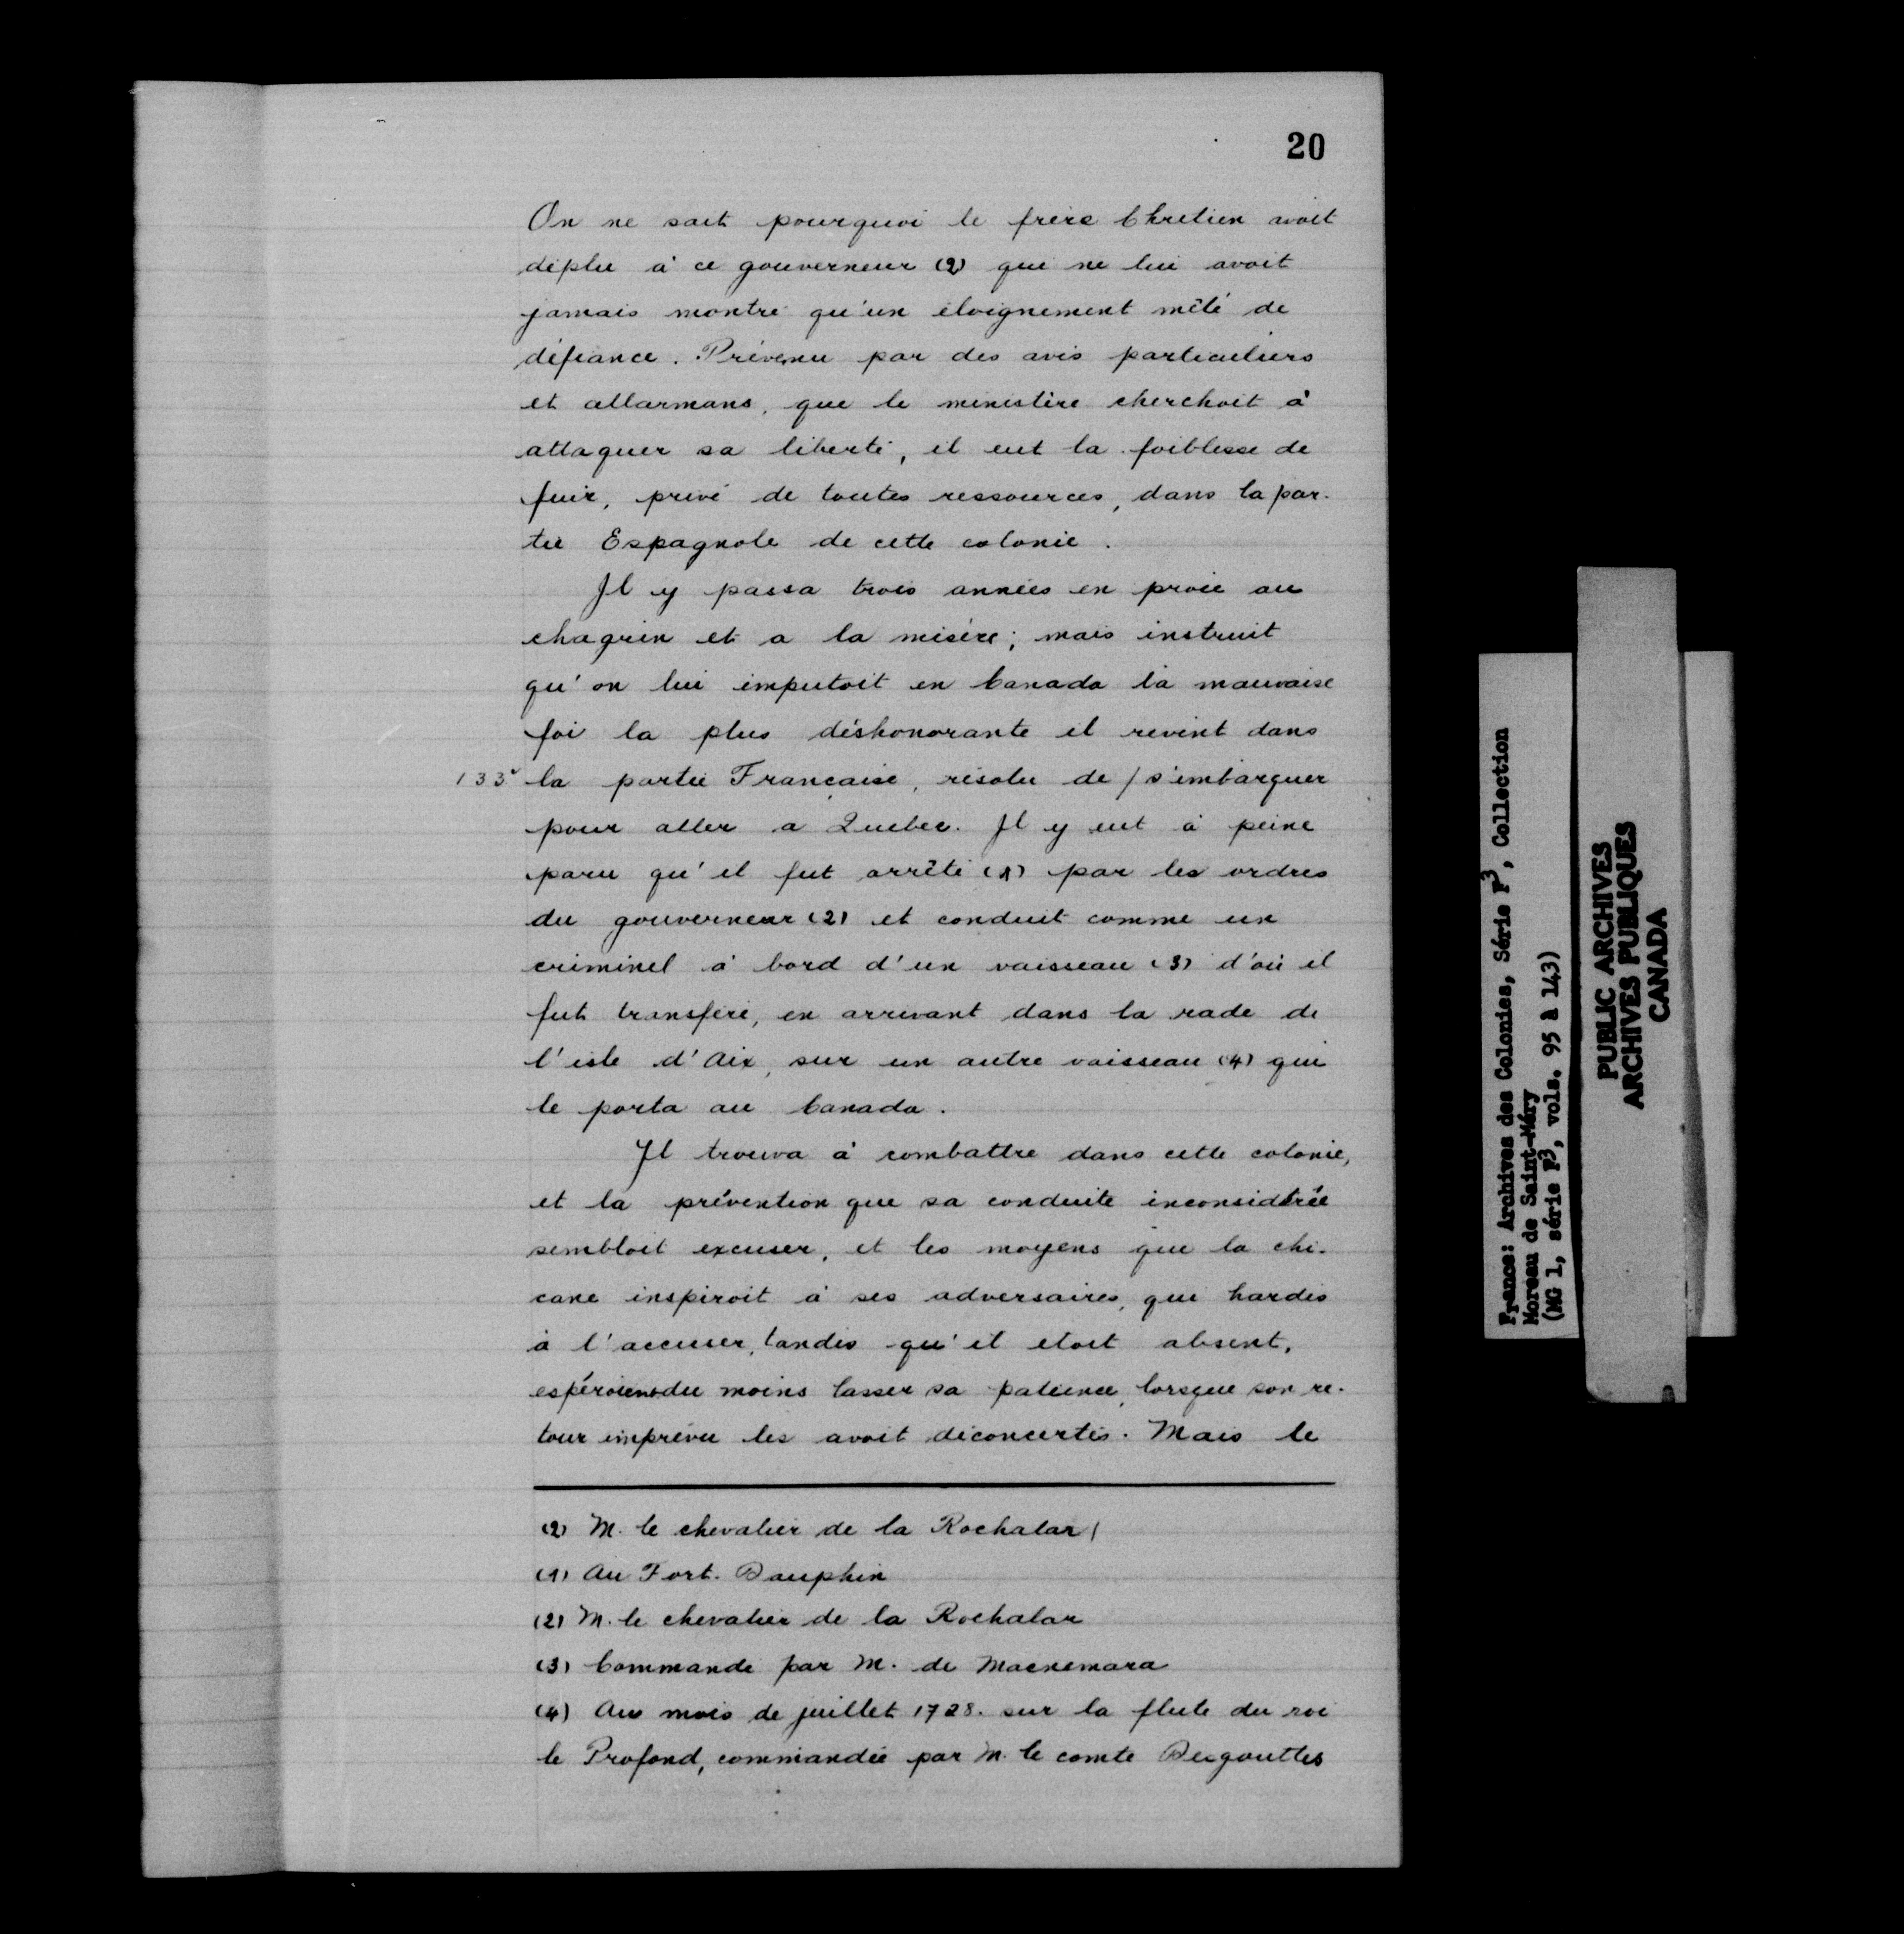 20
On ne sait pourquoi le frère Chretien avoit
déplu à ce gouverneur (2) qui ne lui avoit
jamais montré qu'un éloignement mêlé de
défiance. Prévenu par des avis particuliers
et allarmans, que le ministère cherchoit à
attaquer sa liberté, il eut la foiblesse de
fuir, privé de toutes ressources, dans la par-
tie Espagnole de cette colonie.
Il y passa trois années en proie au
chagrin et a la misère; mais instruit
qu'on lui imputoit en Canada la mauvaise
foi la plus déshonorante il revint dans
133v la partie Française, résolu de / s'embarquer
pour aller a Quebec. Il y eut à peine
paru qu'il fut arrêté (1) par les ordres
du gouverneur (2) et conduit comme un
criminel à bord d'un vaisseau (3) d'où il
fut transféré, en arrivant dans la rade de
l'isle d'Aix, sur un autre vaisseau (4) qui
le porta au Canada.
Il trouva à combattre dans cette colonie,
et la prévention que sa conduite inconsidérée
sembloit excuser, et les moyens que la chi-
cane inspiroit à ses adversaires, qui hardis
à l'accuser, tandis qu'il etoit absent,
espéroient du moins lasser sa patience, lorsque son re-
tour imprévu les avoit déconcertés. Mais le
(2) M. le chevalier de la Rochalar /
(1) Au Fort-Dauphin
(2) M. le chevalier de la Rochalar
(3) Commandé par M. de Macnemara
(4) Au mois de juillet 1728. sur la flute du roi
le Profond, commandée par M. le comte Desgouttes
France: Archives des Colonies, Série F3, Collection
Moreau de Saint-Méry
(MG 1, série F3, vols. 95 à 143)
PUBLIC ARCHIVES
ARCHIVES PUBLIQUES
CANADA